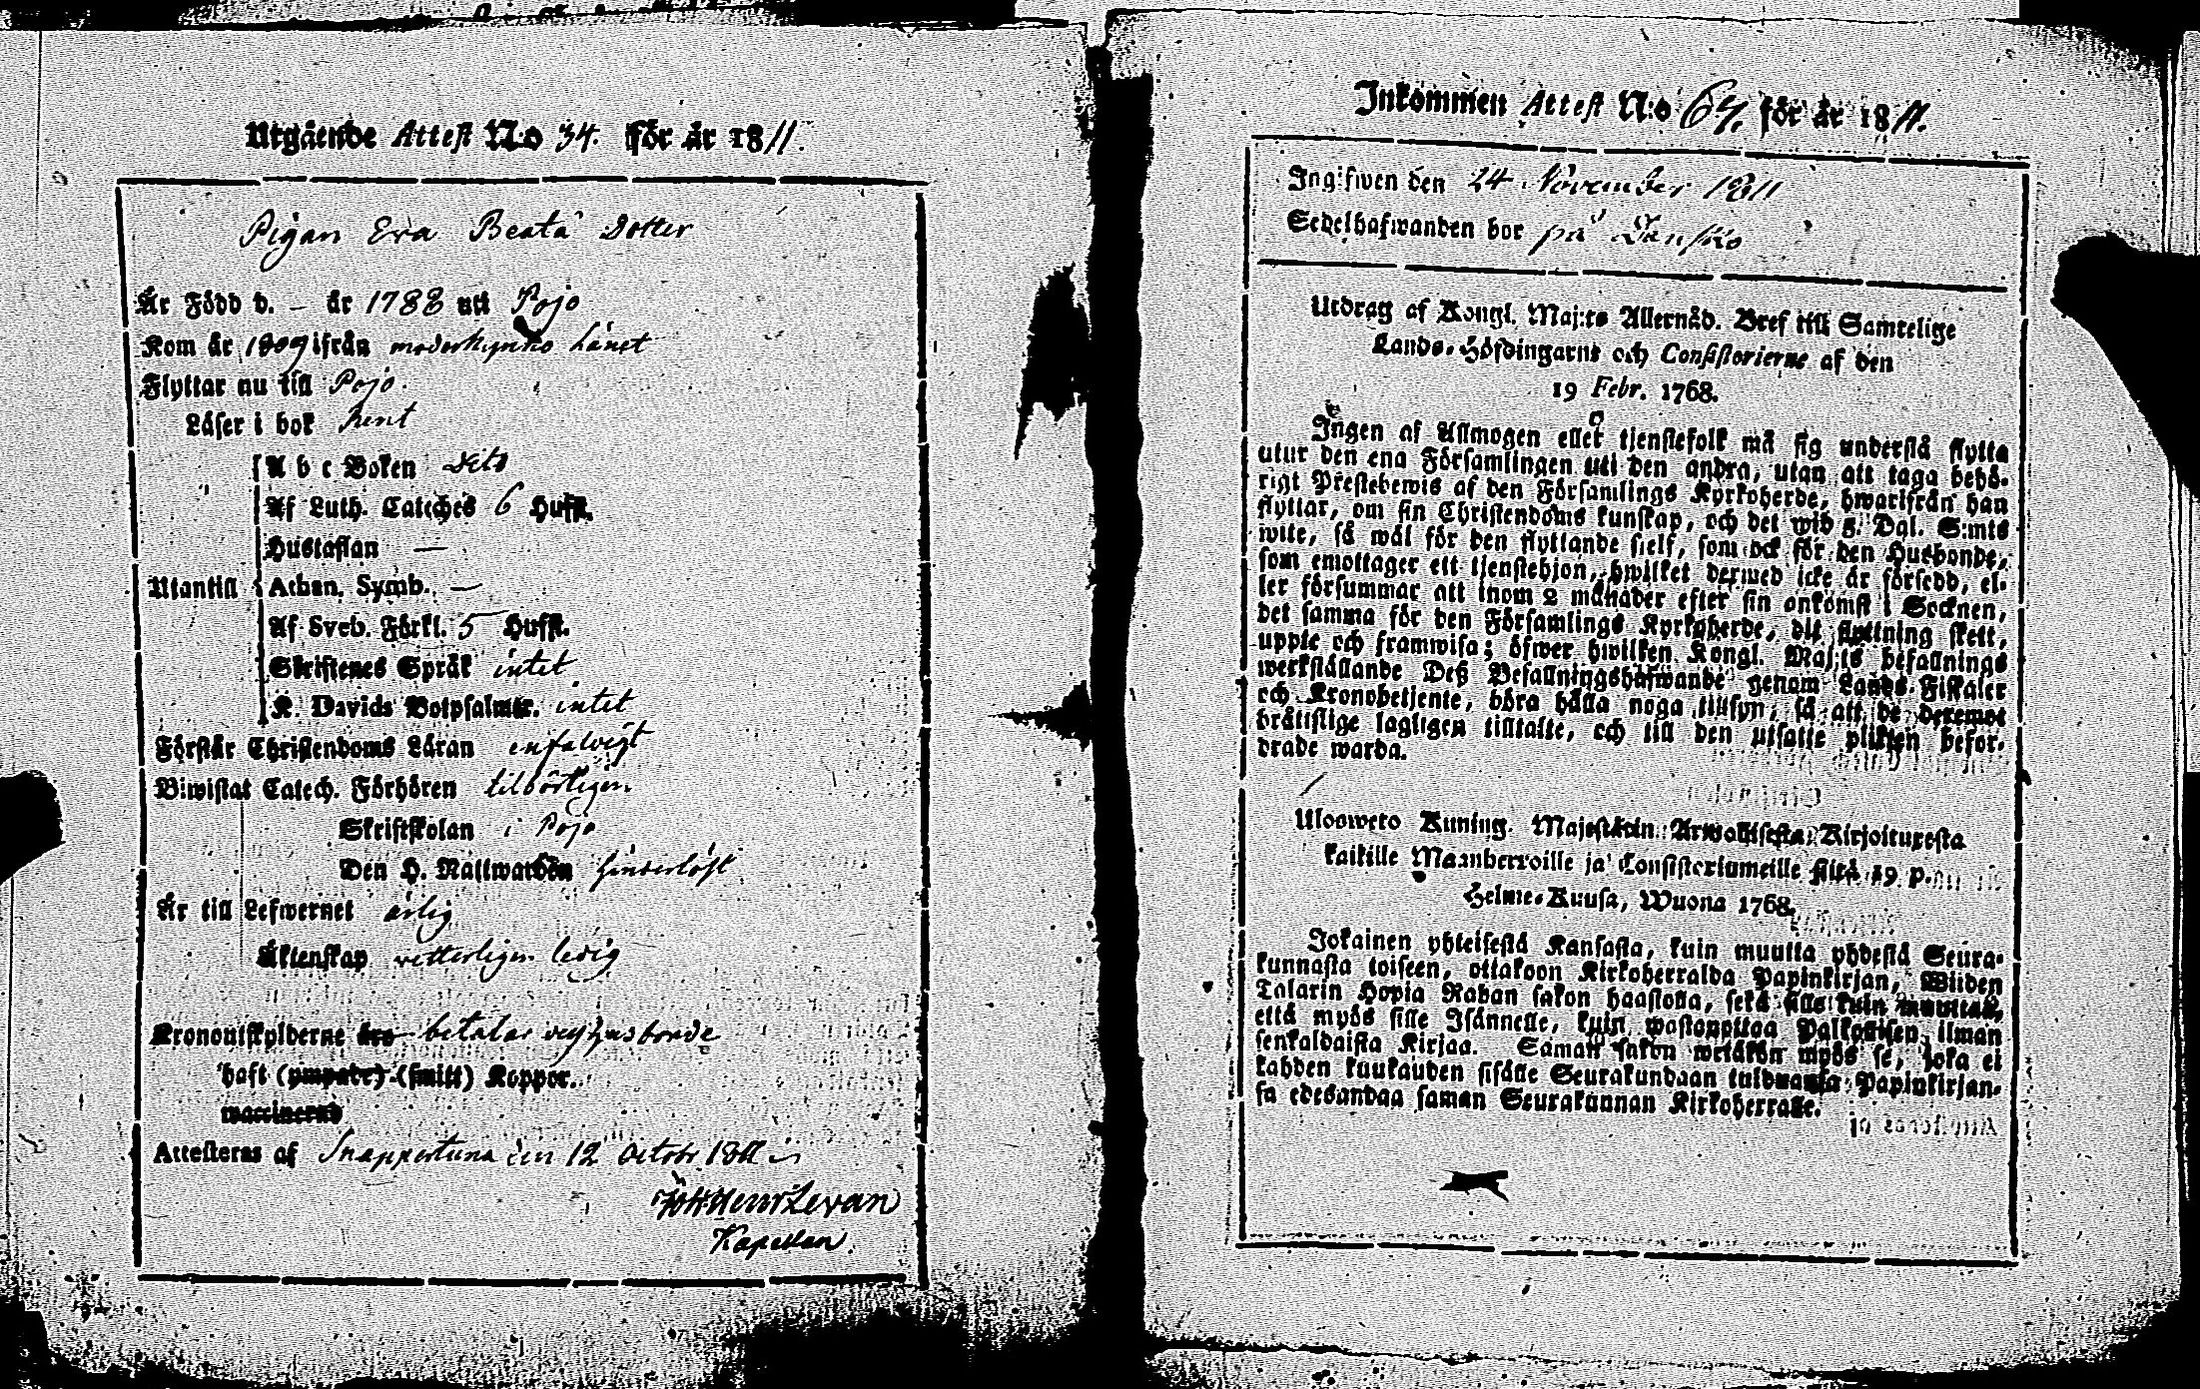 Utgående Attest N:o 34. för år 1811.
Pigan Eva Beata Dotter
Är Född d. – år 1788 uti Pojo
Kom år 1809 ifrån moderkyrko Länet
Flyttar nu till Pojo.
Läser i bok rent
A b c Boken dito
Af Luth. Cateches 6 Hufst.
Hustaflan —
Utantill Athan. Symb. —
Af Sveb. Förkl. 5 Hufst.
Skriftenes Språk intet
K. Davids Botpsalmer. intet
Förstår Christendoms Läran enfaldigt
Biwistat Catech. Förhören tilbörligen
Skriftskolan i Pojo
Den H. Nattwarden hinderlöst
Är till Lefwernet ärlig
Äktenskap vetterligen ledig
Kronoutskylderne betalas husbonde
haft (ympade) (smitt) Koppor.
waccinerad
Attesteras af Snappertuna den 12 Octobr 1811
Levan
Kapellan.
Inkommen Attest N:o 67. för år 1811.
Ingifwen den 24 November 1811
Sedelhafwanden bor på
Utdrag af Kongl. Maj:ts Allernåd. Bref till Samtelige
Lands-Höfdingarne och Consistorierne af den
19 Febr. 1768.
Ingen af Allmogen eller tjenstefolk må sig understå flytta
utur den ena Församlingen uti den andra, utan att taga behö-
rigt Prestebewis af den Församlings Kyrkoherde, hwarifrån han
flyttar, om sin Christendoms kunskap, och det wid 5. Dal. S:mts
wite, så wäl för den flyttande sielf, som ock för den Husbonde,
som emottager ett tjenstehjon, hwilket dermed icke är försedd, el-
ler försummar att inom 2 månader efter sin ankomst i Socknen,
det samma för den Församlings Kyrkoherde, dit flyttning skett,
uppte och framwisa; öfwer hwilken Kongl. Maj:ts befallnings
werkställande Deß Befallningshafwande genom Lands-Fiskaler
och Kronobetjente, böra hålla noga tillsyn, så att de deremot
bråttslige lagligen tilltalte, och till den utsatte plikten befor-
drade warda.
Uloswetto Kuning. Majestätin Armollisesta Kirjoituxesta
kaikille Maanherroille ja Consistoriumeille siltä 19 p.
Helme-Kuusa, Wuona 1768.
Jokainen yhteisestä Kansasta, kuin muutta yhdestä Seura-
kunnasta toiseen, ottakoon Kirkoherralda Papinkirjan, Wiiden
Talarin Hopia Rahan sakon haastolla, sekä sille kuin muuttaa,
että myös sille Isännelle, kuin wastanottaa Palkollisen ilman
senkaldaista Kirjaa. Saman sakon wetäkön myös se, joka ei
kahden kuukauden sisälle Seurakundaan tulduansa Papinkirjan-
sa edesandaa saman Seurakunnan Kirkoherralle.